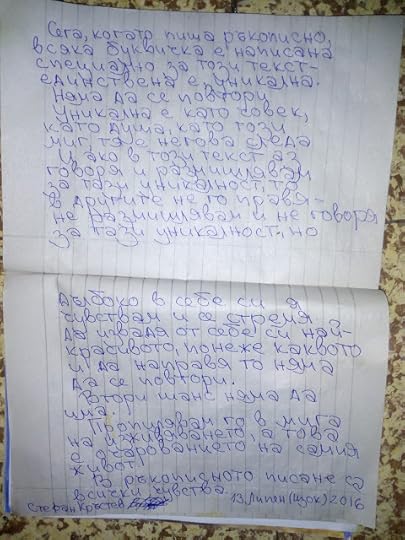 Сега, когато пиша ръкописно,
всяка буквичка е написана
специално за този текст-
единствена е, уникална.
Няма да се повтори.
Уникална е като човек,
като душа, като този
миг, тя е негова среда
И ако в този текст аз
говоря и размишлявам
за тази уникалност, то
в другите не го правя-
не размишлявам и не говоря
за тази уникалност, но
дълбоко в себе си я
чувствам и се стремя
да извадя от себе си най-
красивото, понеже каквото
и да направя то няма
да се повтори.
Втори шанс няма да
има.
Пропивам го в мига
на изживяването, а това
е очарованието на самия
живот!
В ръкописното писане са
всички чувства.
Стефан Кръстев 13, Липен (Изок) 2016